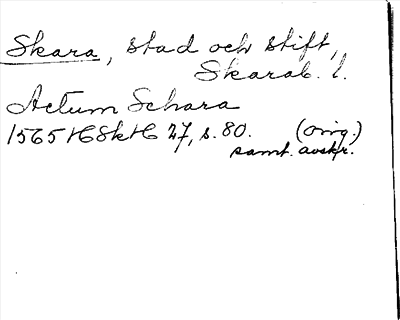 Skara, stad och stift,
Skarab. l.
Actum Schara
1565 HSH 27, s. 80. (orig.)
samt. avskr.